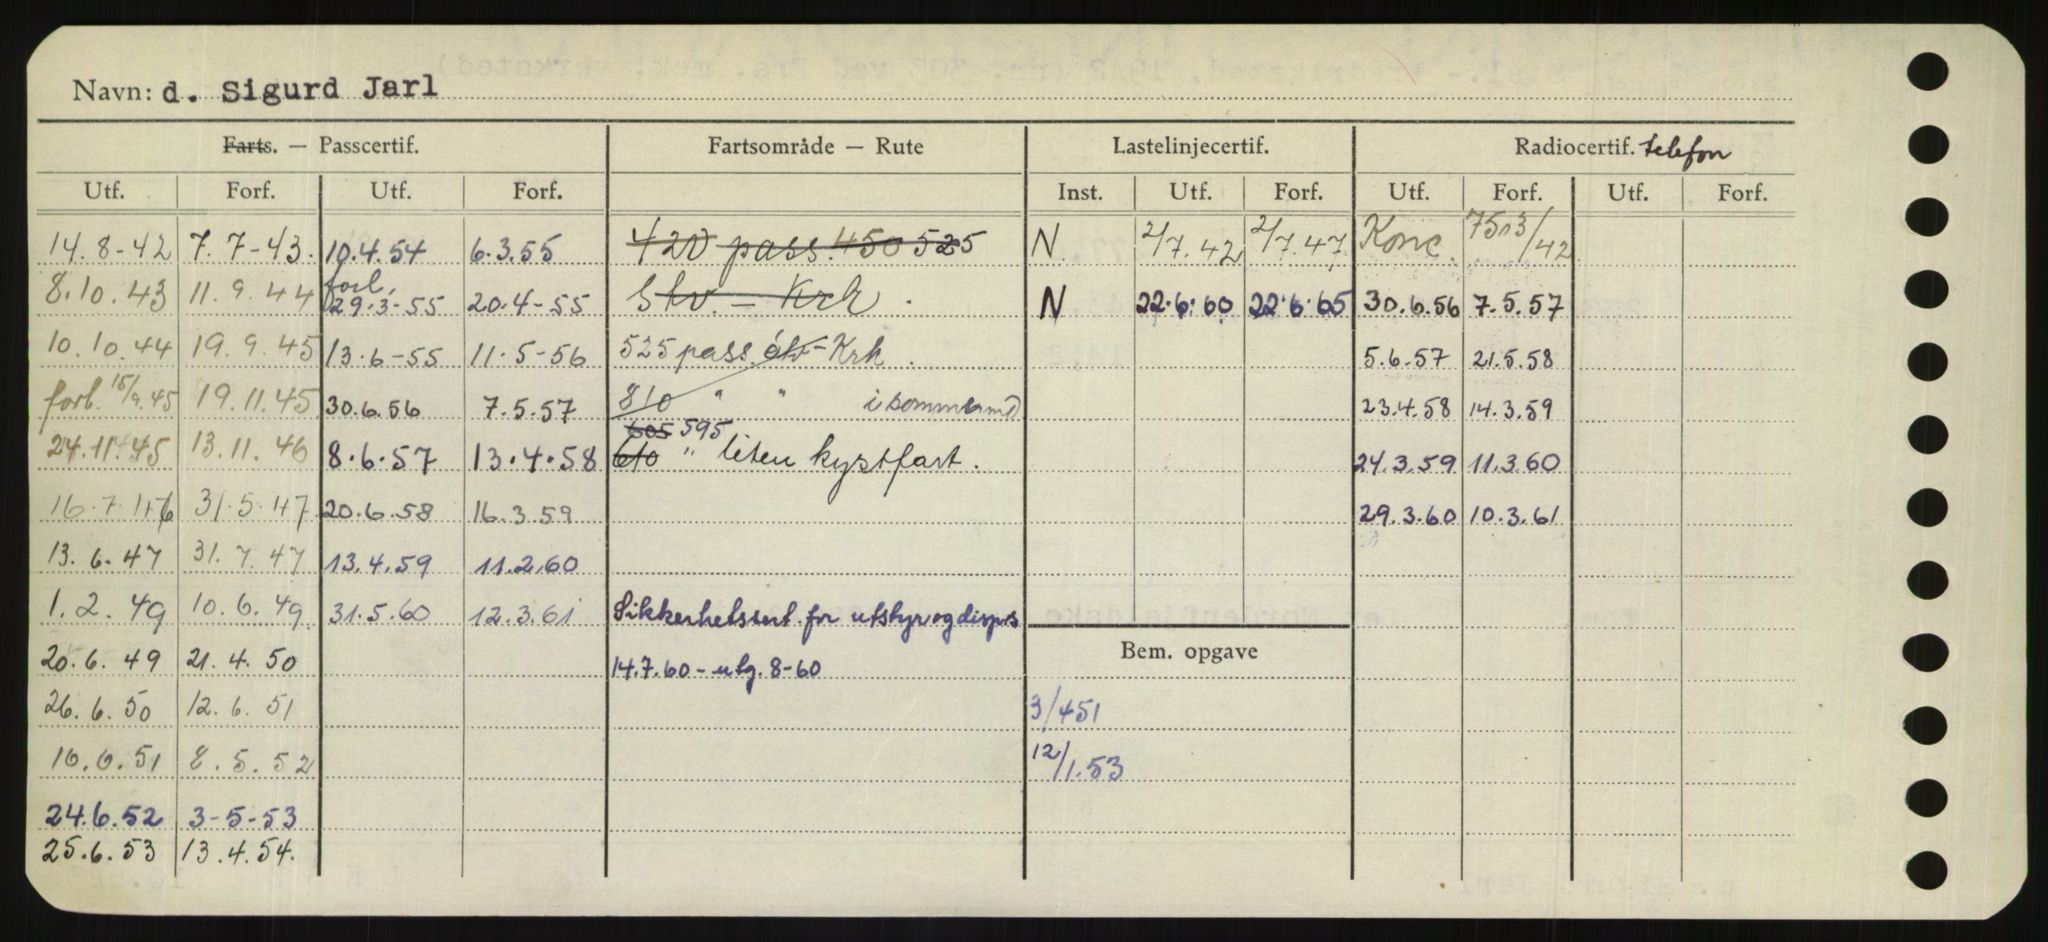 Navn: d. Sigurd Jarl
Farts. — Passcertif. Fartsområde — Rute Lastelinjecertif. Radiocertif. telefon
Utf. Forf. Utf. Forf. Inst. Utf. Forf. Utf. Forf. Utf. Forf.
14.8-42 7.7-43. 10.4.54 6.3.55 420 pass. 450 525 N 2/7.42 2/7.47 Konc. 7513/42
8.10.43 11.9.44 forl. 29.3-55 20.4-55 Stv. - Krk. N 22.6.60 22.6.65 30.6.56 7.5.57
10.10.44 19.9.45 13.6-55 11.5-56 525 pass. Krk. 5.6.57 21.5.58
forl. 15/9.45 19.11.45 30.6.56 7.5.57 810 " " i sommermd 23.4.58 14.3.59
605 595
24.11.45 13.11.46 8.6.57 13.4.58 610 " liten kystfart. 24.3.59 11.3.60
16.7.46 31.5.47 20.6.58 16.3.59 29.3.60 10.3.61
13.6.47 31.7.47 13.4.59 11.2.60
1.2.49 10.6.49 31.5.60 12.3.61 Sikkerhetssert. for utstyr og dispes
20.6.49 21.4.50 14.7.60 - utg. 8-60 Bem. opgave
26.6.50 12.6.51 3/451
16.6.51 8.5.52 12/1.53
24.6.52 3-5-53
25.6.53 13.4.54.